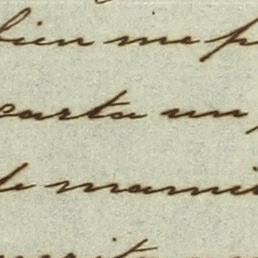 bien me p
carta un
de mami